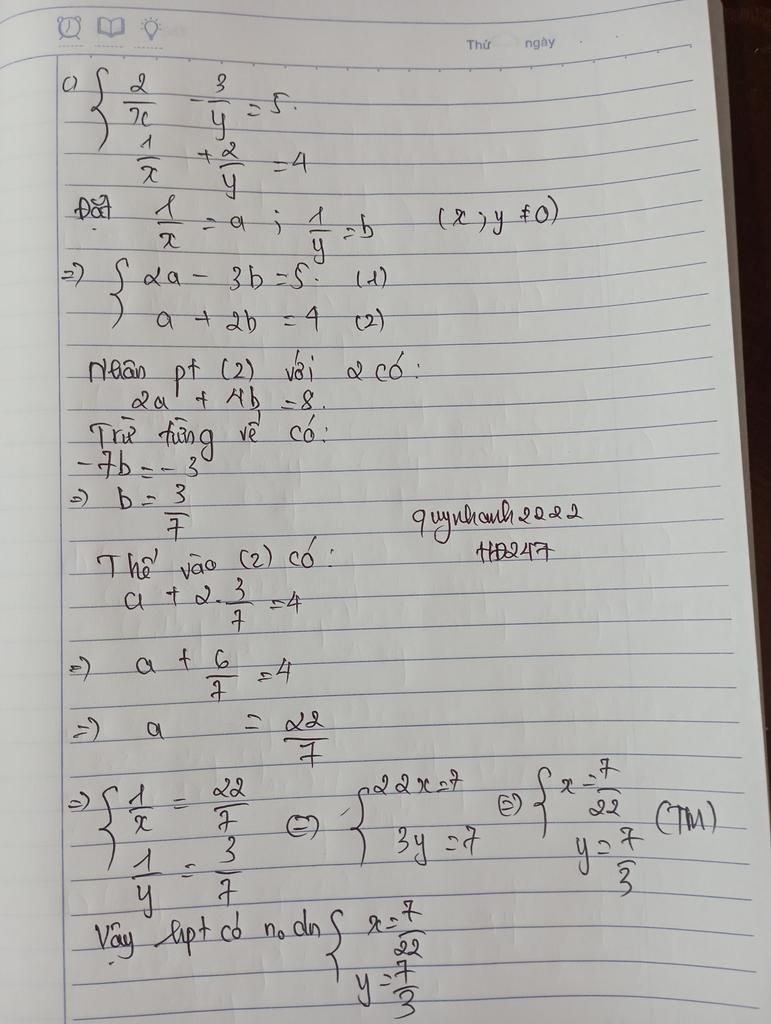 Thứ ngày
c) { 2/x - 3/y = 5.
1/x + 2/y = 4
Đặt 1/x = a ; 1/y = b (x ; y ≠ 0)
=> { 2a - 3b = 5. (1)
a + 2b = 4 (2)
Nhân pt (2) với 2 có:
2a + 4b = 8.
Trừ từng vế có:
-7b = -3
=> b = 3/7
quynhanh2222
HD247
Thế vào (2) có:
a + 2.3/7 = 4
=> a + 6/7 = 4
=> a = 22/7
=> { 1/x = 22/7 <=> { 22x = 7 <=> { x = 7/22 (TM)
1/y = 3/7 3y = 7 y = 7/3
Vậy hpt có no dn { x = 7/22
y = 7/3